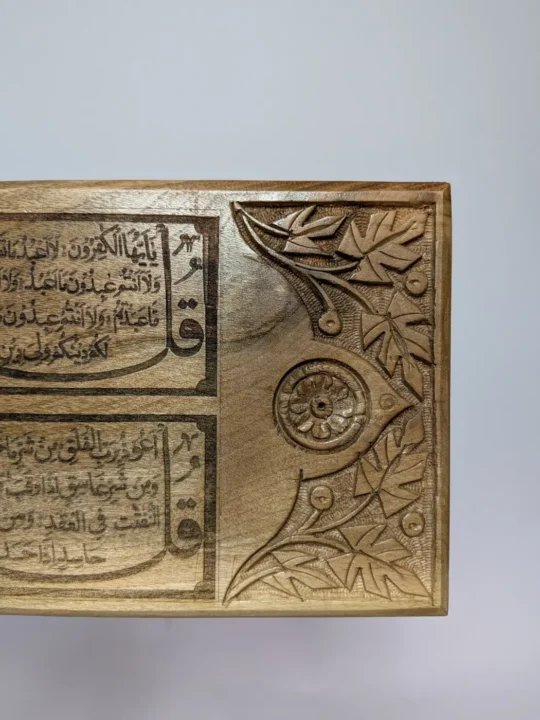 قُلْ
يَٰٓأَيُّهَا ٱلْكَٰفِرُونَ لَآ أَعْبُدُ مَا
وَلَآ أَنتُمْ عَٰبِدُونَ مَآ أَعْبُدُ وَلَآ
مَّا عَبَدتُّمْ وَلَآ أَنتُمْ عَٰبِدُونَ
لَكُمْ دِينُكُمْ وَلِىَ دِينِ
قُلْ
أَعُوذُ بِرَبِّ ٱلْفَلَقِ مِن شَرِّ مَا
وَمِن شَرِّ غَاسِقٍ إِذَا وَقَبَ
ٱلنَّفَّٰثَٰتِ فِى ٱلْعُقَدِ وَمِن
حَاسِدٍ إِذَا حَسَدَ